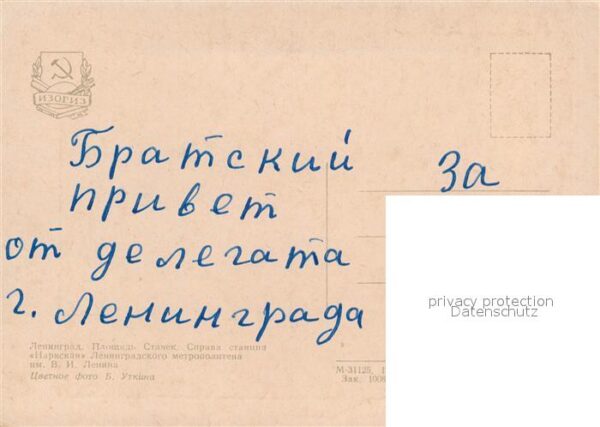 ИЗОГИЗ
Братский
привет
от делегата
г. Ленинграда
За
Ленинград. Площадь Стачек. Справа станция
«Нарвская» Ленинградского метрополитена
им. В. И. Ленина
Цветное фото Б. Уткина
М-31125,
Зак.
privacy protection
Datenschutz